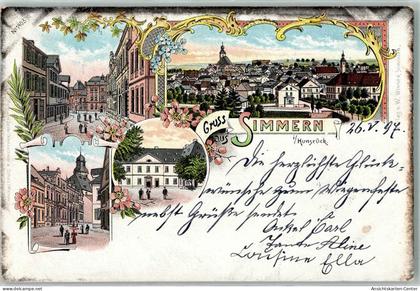 Gruss
aus
SIMMERN
i/Hunsrück.
26.V.97.
Die herzlichste Glück-
wünsche zum Wiegenfeste
nebst Grüße sendet
Onkel Carl
Tante Aline
Cousine Ella
Ansichtskarten-Center